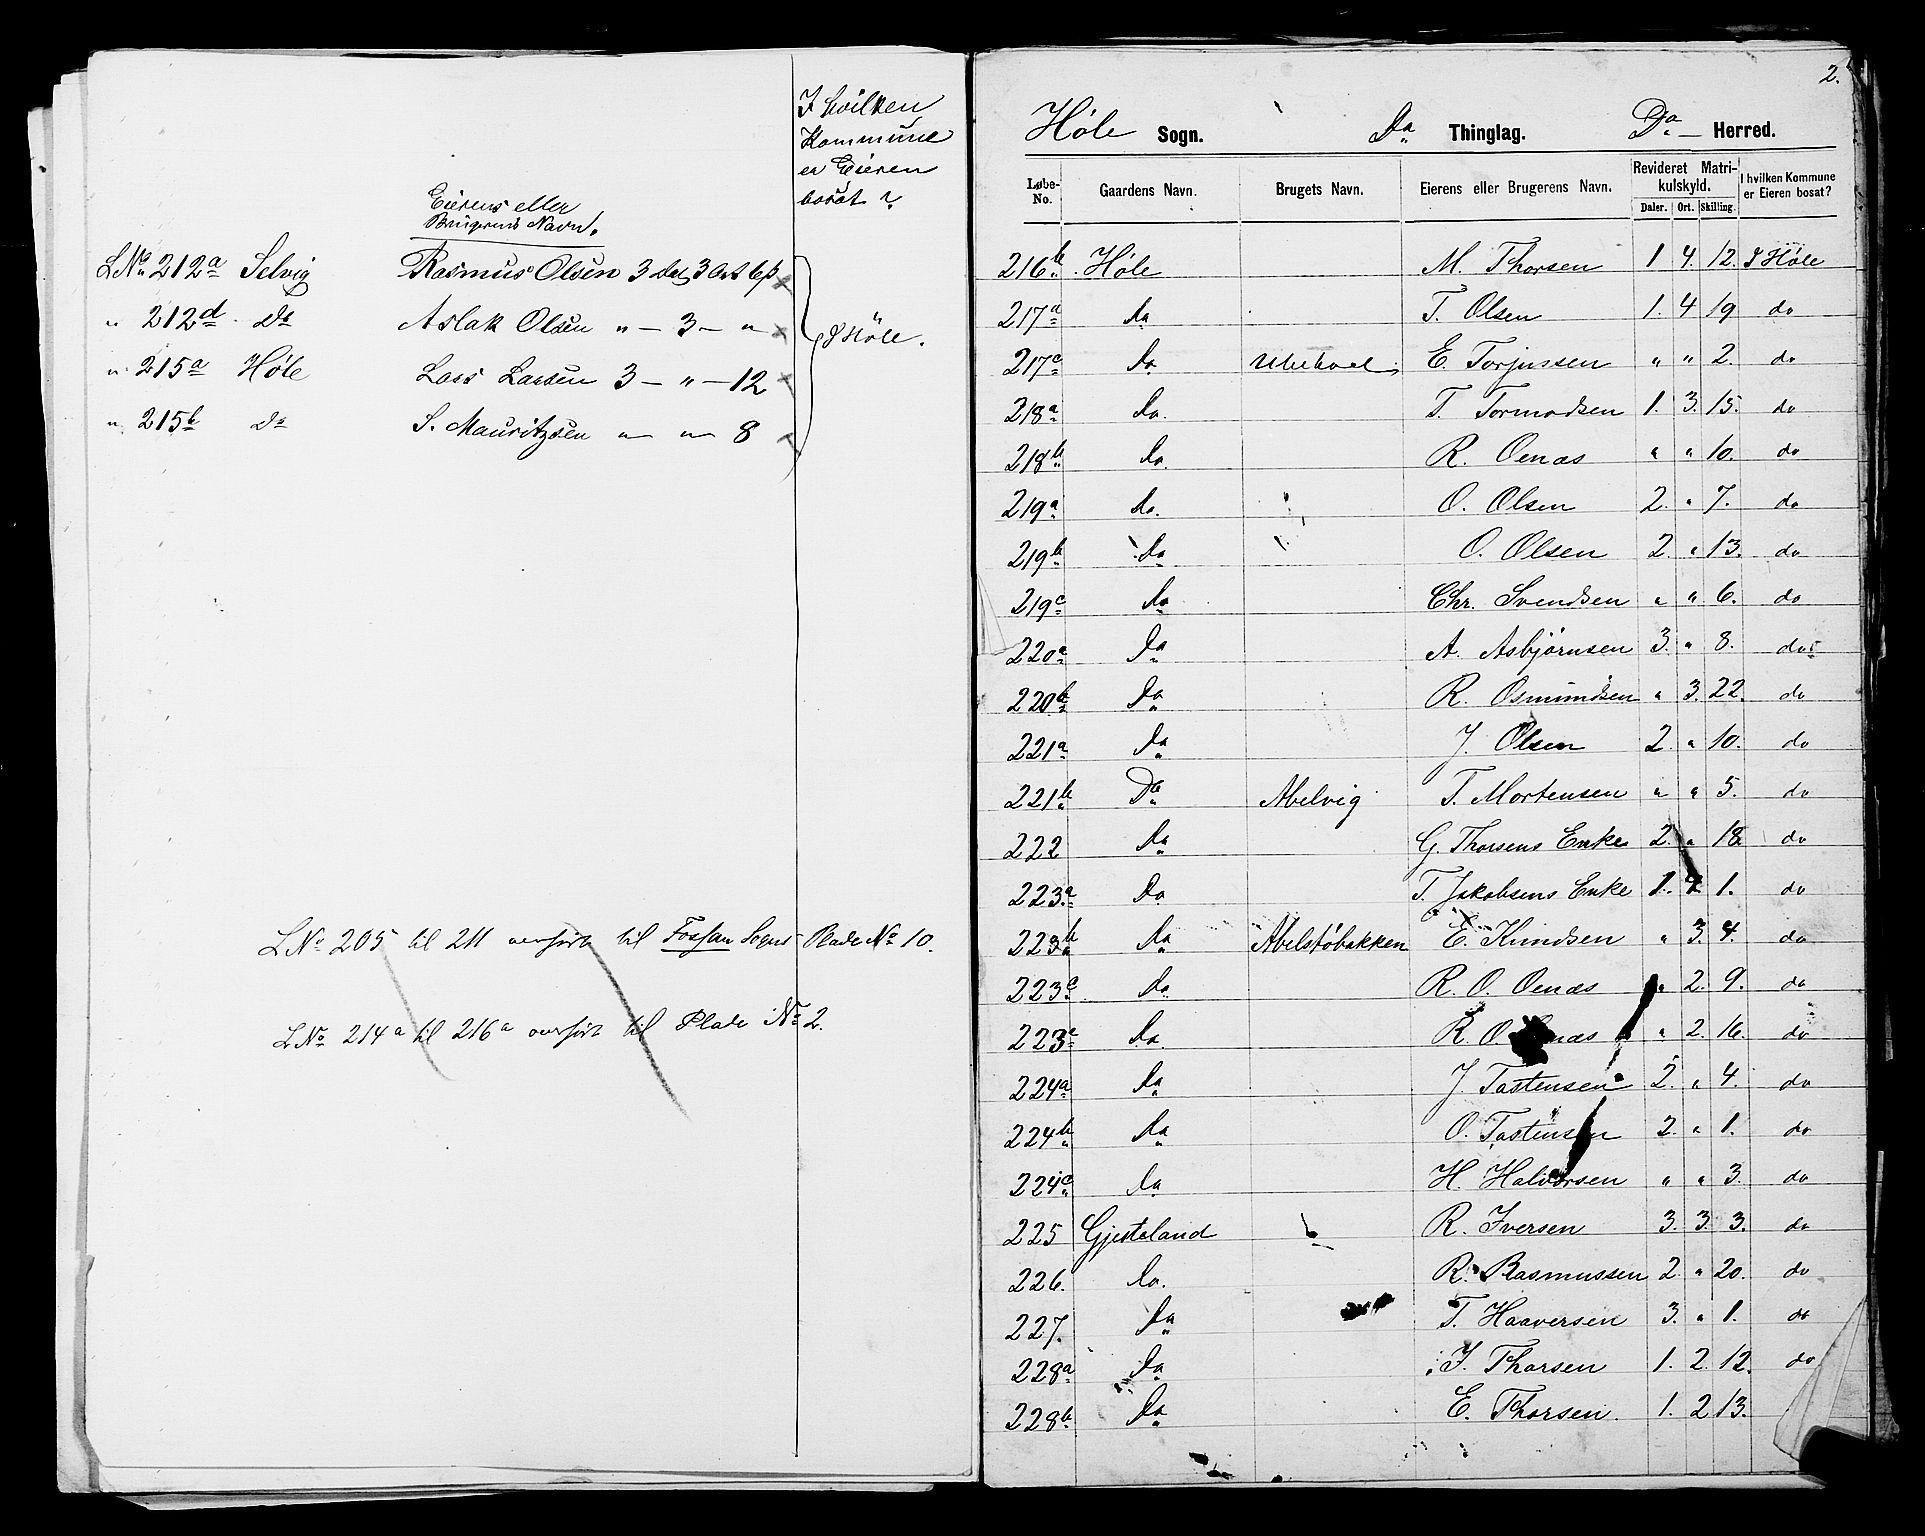 I hvilken
Kommune
er Eieren
bosat?
Eierens eller
Brugerens Navn.
LNo 212a Selvig Rasmus Olsen 3 Dal 3 Ort 6 ß
" 212d do Aslak Olsen " — 3 — "
I Höle.
" 215a Høle Lars Larsen 3 — " — 12
" 215b do S. Mauritzsen " " 8
LNo 205 til 211 overført til Fossan Sogns Plade No 10.
LNo 214a til 216a overført til Plade No 2.
2.
Høle Sogn. Da Thinglag. Do Herred.
Løbe-No. Gaardens Navn. Brugets Navn. Eierens eller Brugerens Navn. Revideret Matrikulskyld. I hvilken Kommune er Eieren bosat?
Daler. Ort. Skilling.
216b Høle M. Thorsen 1. 4. 12. I Høle
217a da T. Olsen 1. 4 19 do
217c da E. Torjussen " " 2. do
218a da. T. Tormodsen 1. 3. 15. do
218b da. R. Oenæs " " 10. do
219a da. O. Olsen 2. " 7. do
219b da O. Olsen 2. " 13. do
219c da Chr. Svendsen " " 6. do
220a Da A. Asbjørnsen 3. " 8. do
220b Da R. Osmundsen " 3. 22. do
221a Da J Olsen 2. " 10. do
221b Da Abelvig T. Mortensen " " 5. do
222 Da G. Thorsens Enke 2. " 18. do
223a Da T. Jakobsens Enke 1. 4 1. do
223b Da Abelstøbakken E. Knudsen " 3. 4. do
223c da R. O. Oenæs " 2. 9. do
223e da. R. O næs " 2. 16. do
224a da J Tastensen 2. " 4. do
224b da O. Tastensen 2. " 1. do
224c da H. Halvorsen " " 3. do
225 Gjesteland R. Iversen 3. 3. 3. do
226. da. R. Rasmussen 2 " 20. do
227. Da T. Haaversen 3. " 1. do
228a Da J. Thorsen 1. 2. 12. do
228b Da E. Thorsen. 1. 2 13.